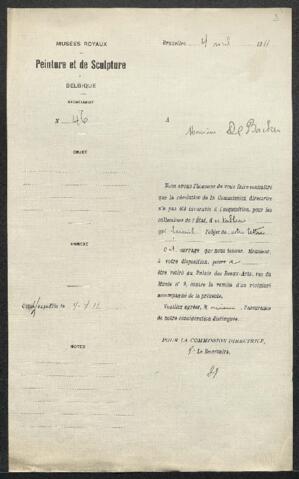 3
MUSÉES ROYAUX
DE
Peinture et de Sculpture
DE
BELGIQUE
SECRÉTARIAT
N° 46
OBJET
ANNEXE
expédiée le 4-4-11
NOTES
Bruxelles, 4 avril 1911
A
Monsieur De Backer
Nous avons l'honneur de vous faire connaître
que la résolution de la Commission directrice
n'a pas été favorable à l'acquisition, pour les
collections de l'État, du tableau
qui faisait l'objet de votre lettre
Cet ouvrage que nous tenons, Monsieur,
à votre disposition, pourra
être retiré au Palais des Beaux-Arts, rue du
Musée n° 9, contre la remise d'un récépissé
accompagné de la présente.
Veuillez agréer, Monsieur, l'assurance
de notre considération distinguée.
POUR LA COMMISSION DIRECTRICE,
Le Secrétaire,